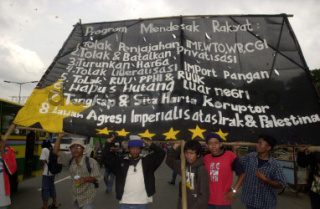 Program Mendesak Rakyat:
1. Tolak Penjajahan IMF, WTO, WB, CGI
2. Tolak & Batalkan Privatisasi
3. Turunkan Harga
4. Tolak Liberalisasi Import Pangan
5. Tolak RUU PPHI & RUUK
6. Hapus Hutang luar negri
7. Tangkap & Sita Harta Koruptor
8. Lawan Agresi Imperialis atas Irak & Palestina